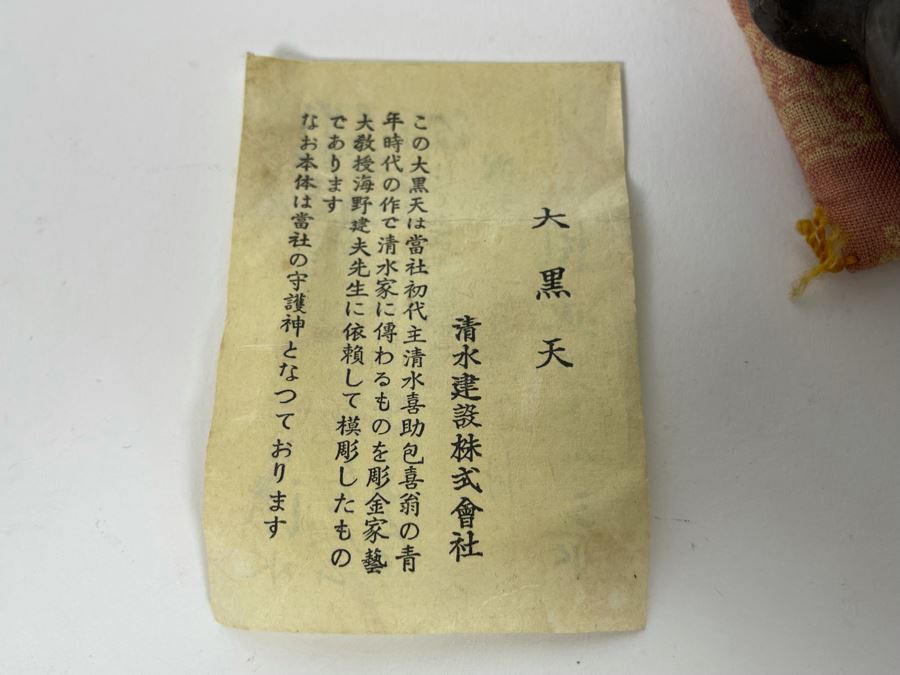 大黒天
清水建設株式會社
この大黒天は當社初代主清水喜助包喜翁の青
年時代の作で清水家に傳わるものを彫金家藝
大教授海野建夫先生に依頼して模彫したもの
であります
なお本体は當社の守護神となつております